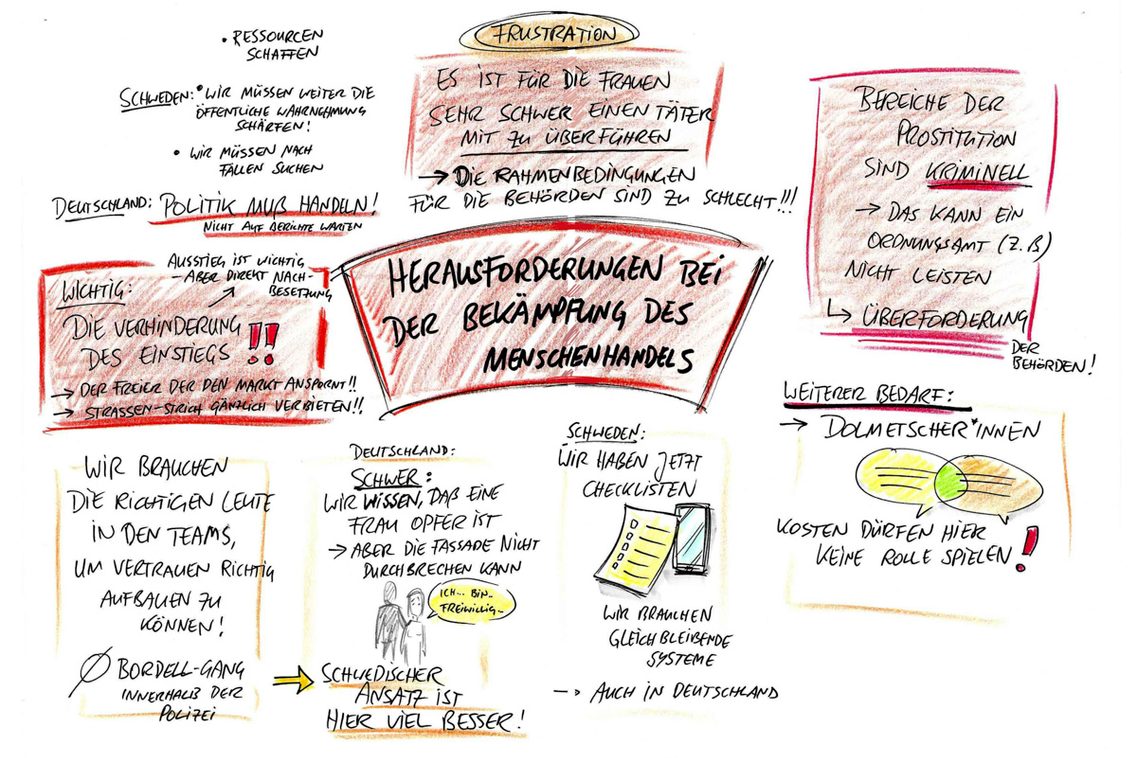 • RESSOURCEN
SCHAFFEN
SCHWEDEN: • WIR MÜSSEN WEITER DIE
ÖFFENTLICHE WAHRNEHMUNG
SCHÄRFEN!
• WIR MÜSSEN NACH
FÄLLEN SUCHEN
DEUTSCHLAND: POLITIK MUß HANDELN!
NICHT AUF BERICHTE WARTEN
FRUSTRATION
ES IST FÜR DIE FRAUEN
SEHR SCHWER EINEN TÄTER
MIT ZU ÜBERFÜHREN
→ DIE RAHMENBEDINGUNGEN
FÜR DIE BEHÖRDEN SIND ZU SCHLECHT!!!
BEREICHE DER
PROSTITUTION
SIND KRIMINELL
→ DAS KANN EIN
ORDNUNGSAMT (Z.B)
NICHT LEISTEN
↳ ÜBERFORDERUNG
DER
BEHÖRDEN!
HERAUSFORDERUNGEN BEI
DER BEKÄMPFUNG DES
MENSCHENHANDELS
AUSSTIEG IST WICHTIG
– ABER DIREKT NACH-
BESETZUNG
WICHTIG:
DIE VERHINDERUNG
DES EINSTIEGS !!
→ DER FREIER DER DEN MARKT ANSPORNT!!
→ STRASSEN-STRICH GÄNZLICH VERBIETEN!!
WIR BRAUCHEN
DIE RICHTIGEN LEUTE
IN DEN TEAMS,
UM VERTRAUEN RICHTIG
AUFBAUEN ZU
KÖNNEN!
Ø BORDELL-GANG
INNERHALB DER
POLIZEI
DEUTSCHLAND:
SCHWER:
WIR WISSEN, DAß EINE
FRAU OPFER IST
→ ABER DIE FASSADE NICHT
DURCHBRECHEN KANN
ICH... BIN..
FREIWILLIG..
SCHWEDISCHER
ANSATZ IST
HIER VIEL BESSER!
SCHWEDEN:
WIR HABEN JETZT
CHECKLISTEN
WIR BRAUCHEN
GLEICHBLEIBENDE
SYSTEME
→ AUCH IN DEUTSCHLAND
WEITERER BEDARF:
→ DOLMETSCHER*INNEN
KOSTEN DÜRFEN HIER
KEINE ROLLE SPIELEN!